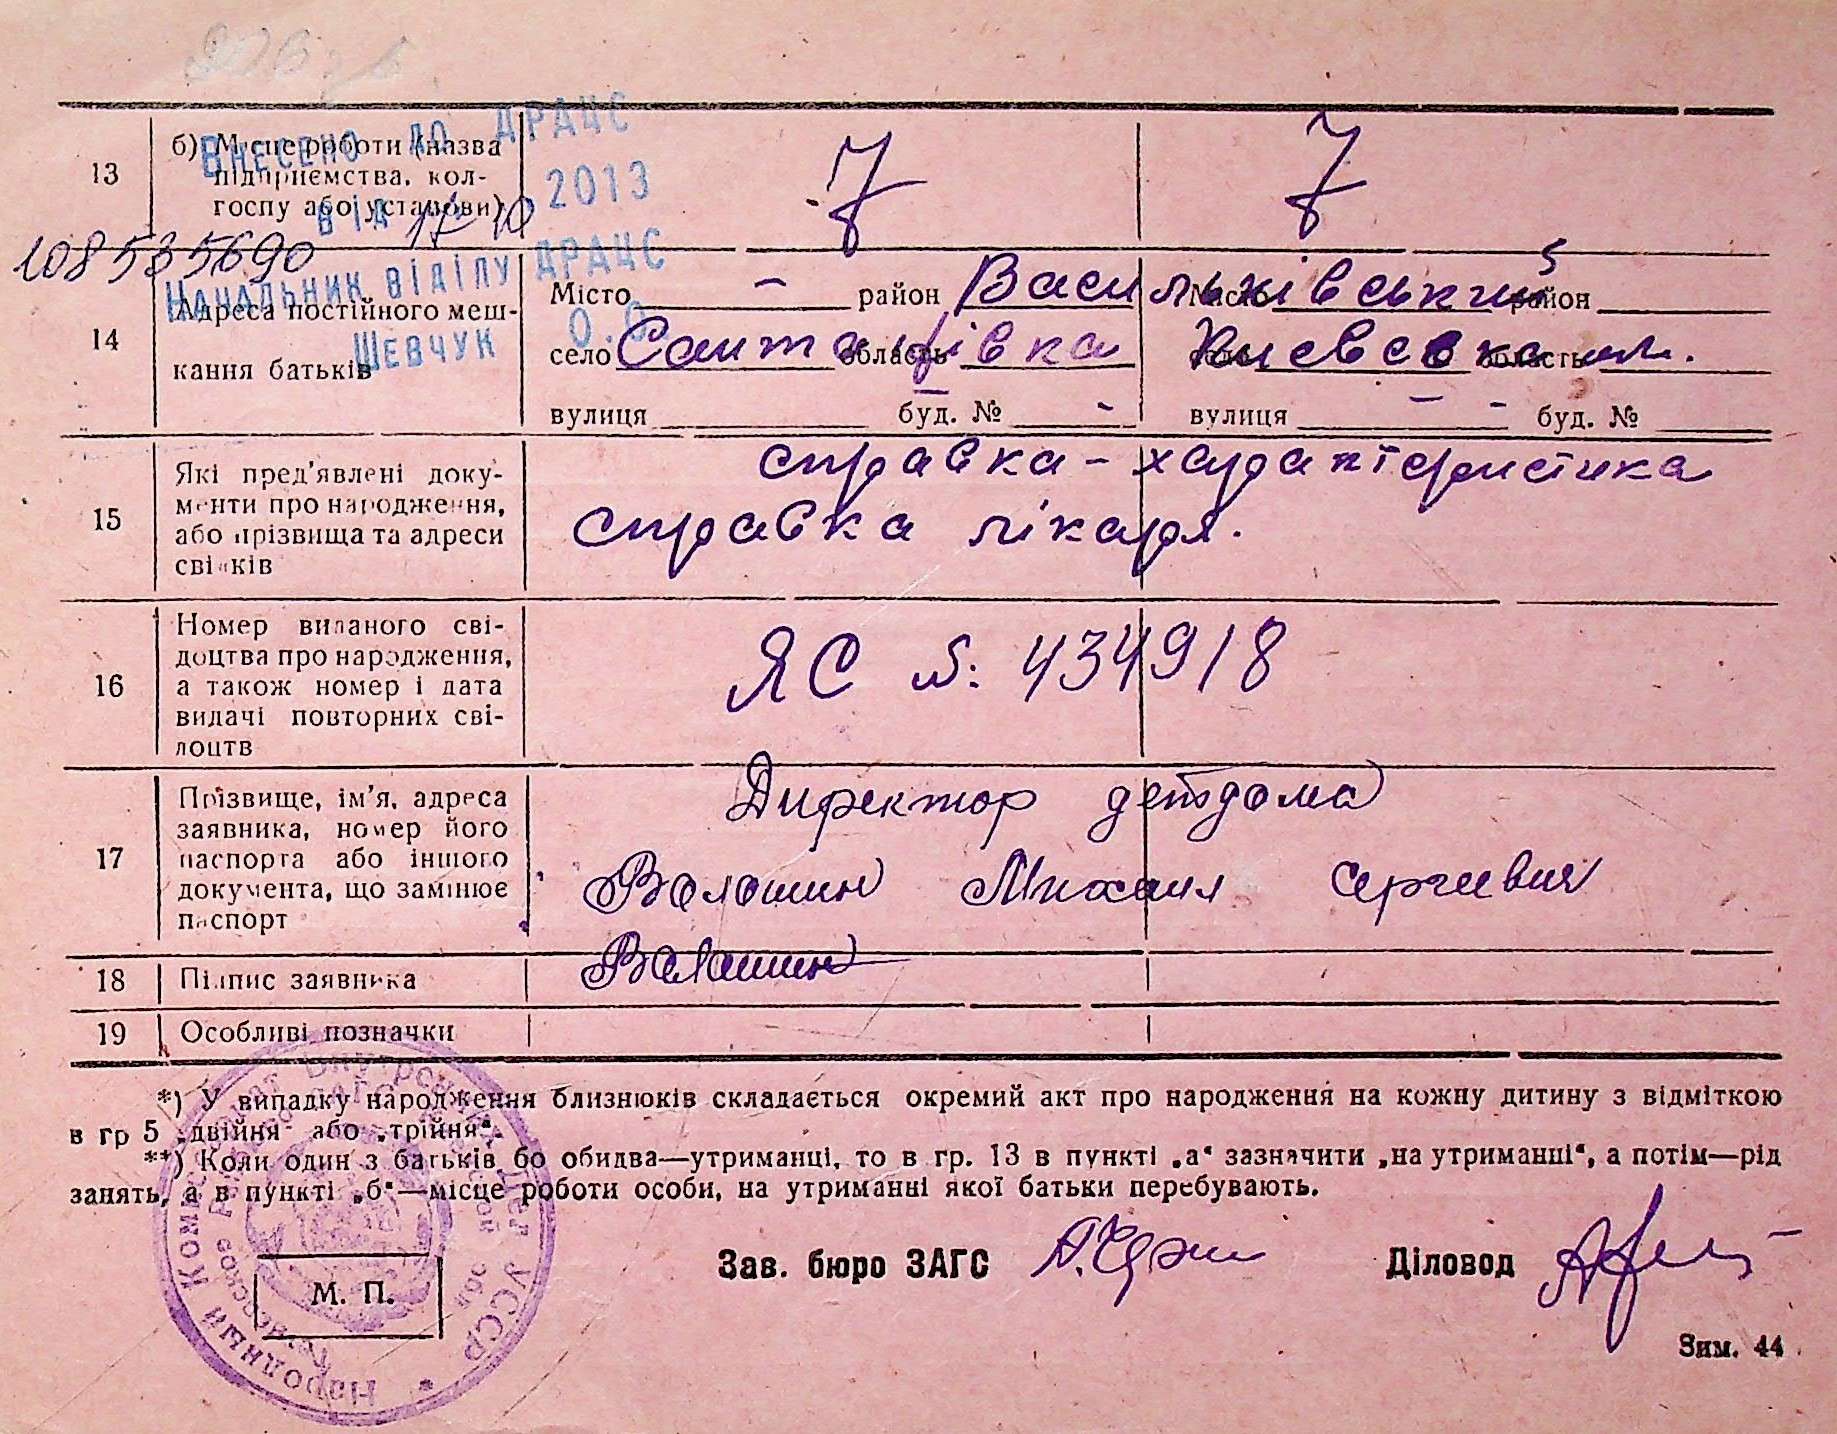 Внесено до ДРАЦС
від 17 10 2013
108535690
Начальник відділу ДРАЦС
Шевчук О.О.
13 б) Місце роботи (назва підприємства, колгоспу або установи)
14 Адреса постійного мешкання батьків
Місто - район Васильківський
Місто район
село область
село область
вулиця - буд. № -
вулиця - буд. № -
15 Які пред'явлені документи про народження, або прізвища та адреси свідків
справка - характеристика
справка лікаря.
16 Номер виданого свідоцтва про народження, а також номер і дата видачі повторних свідоцтв
ЯС №: 434918
17 Прізвище, ім'я, адреса заявника, номер його паспорта або іншого документа, що замінює паспорт
Директор детдома
Валашин Михаил Сергеевич
18 Підпис заявника Валашин
19 Особливі позначки
*) У випадку народження близнюків складається окремий акт про народження на кожну дитину з відміткою
в гр 5 „двійня" або „трійня".
**) Коли один з батьків бо обидва—утриманці, то в гр. 13 в пункті „а" зазначити „на утриманні", а потім—рід
занять, а в пункті „б"—місце роботи особи, на утриманні якої батьки перебувають.
Зав. бюро ЗАГС Діловод
М. П.
Народный Комиссариат Внутренних Дел УССР
Зим. 44